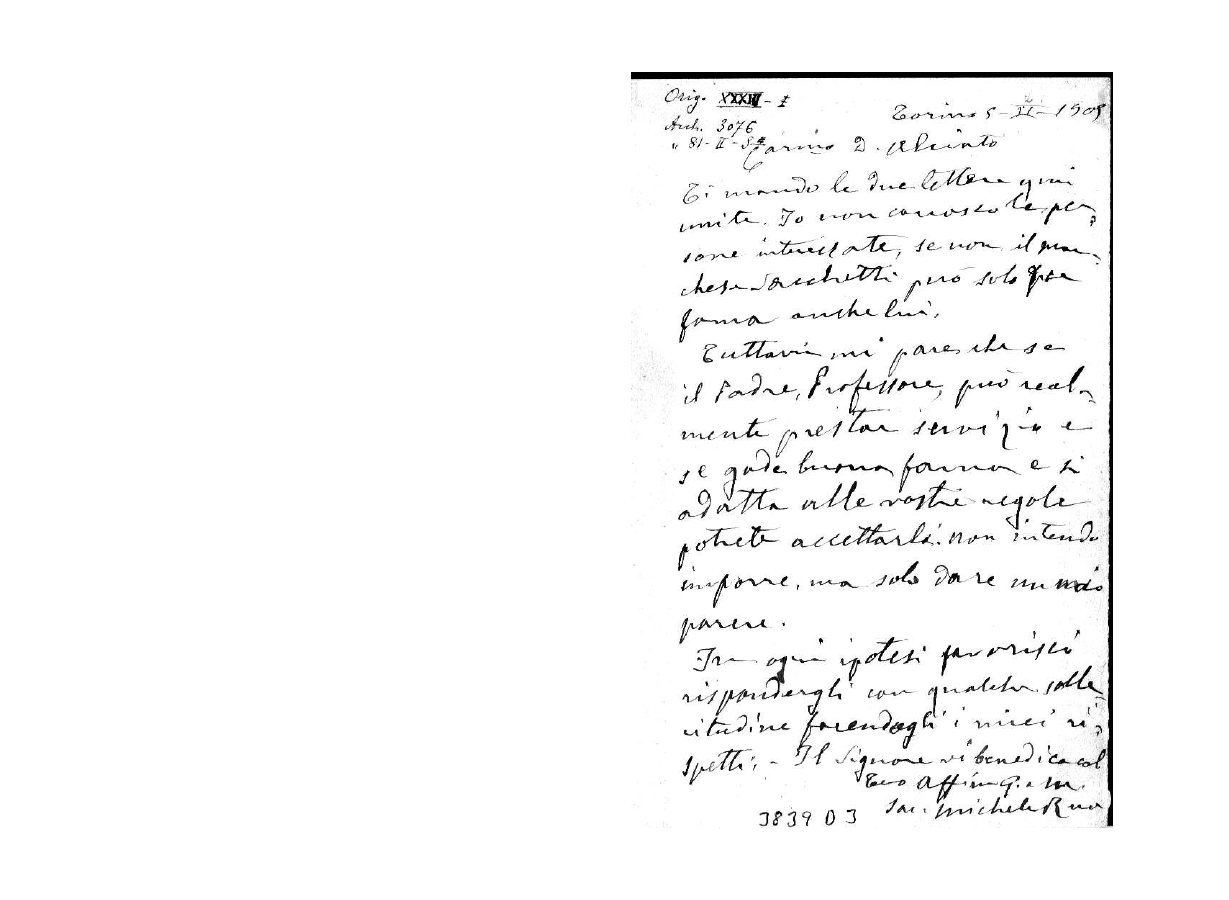 Orig. XXXIII - I
Torino 5-II-1905
Arch. 3076
" 81-II-5
Carino D. Aliinto
Ti mando le due lettere quì
unite. Io non conosco le per,
sone interessate, se non il mar-
chese Sacchetti però solo per
fama anche lui.
Tuttavia mi pare che se
il Padre, Professore, può real-
mente prestar servizio e
se gode buona fama e si
adatta alle vostre regole
potrete accettarlo. non intendo
imporre, ma solo dare un mio
parere.
In ogni ipotesi favorisci
rispondergli con qualche solle
citudine facendogli i miei ri,
spetti. - Il Signore vi benedica col
Tuo Affim G. e M.
Sac. Michele Rua
3839 D 3